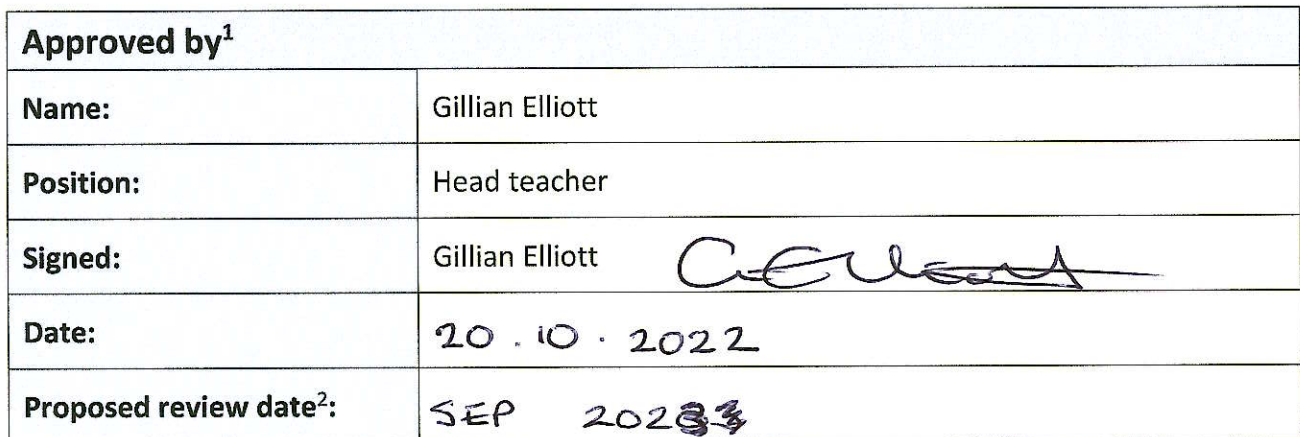 Approved by¹
Name: Gillian Elliott
Position: Head teacher
Signed: Gillian Elliott G Elliott
Date: 20.10.2022
Proposed review date²: SEP